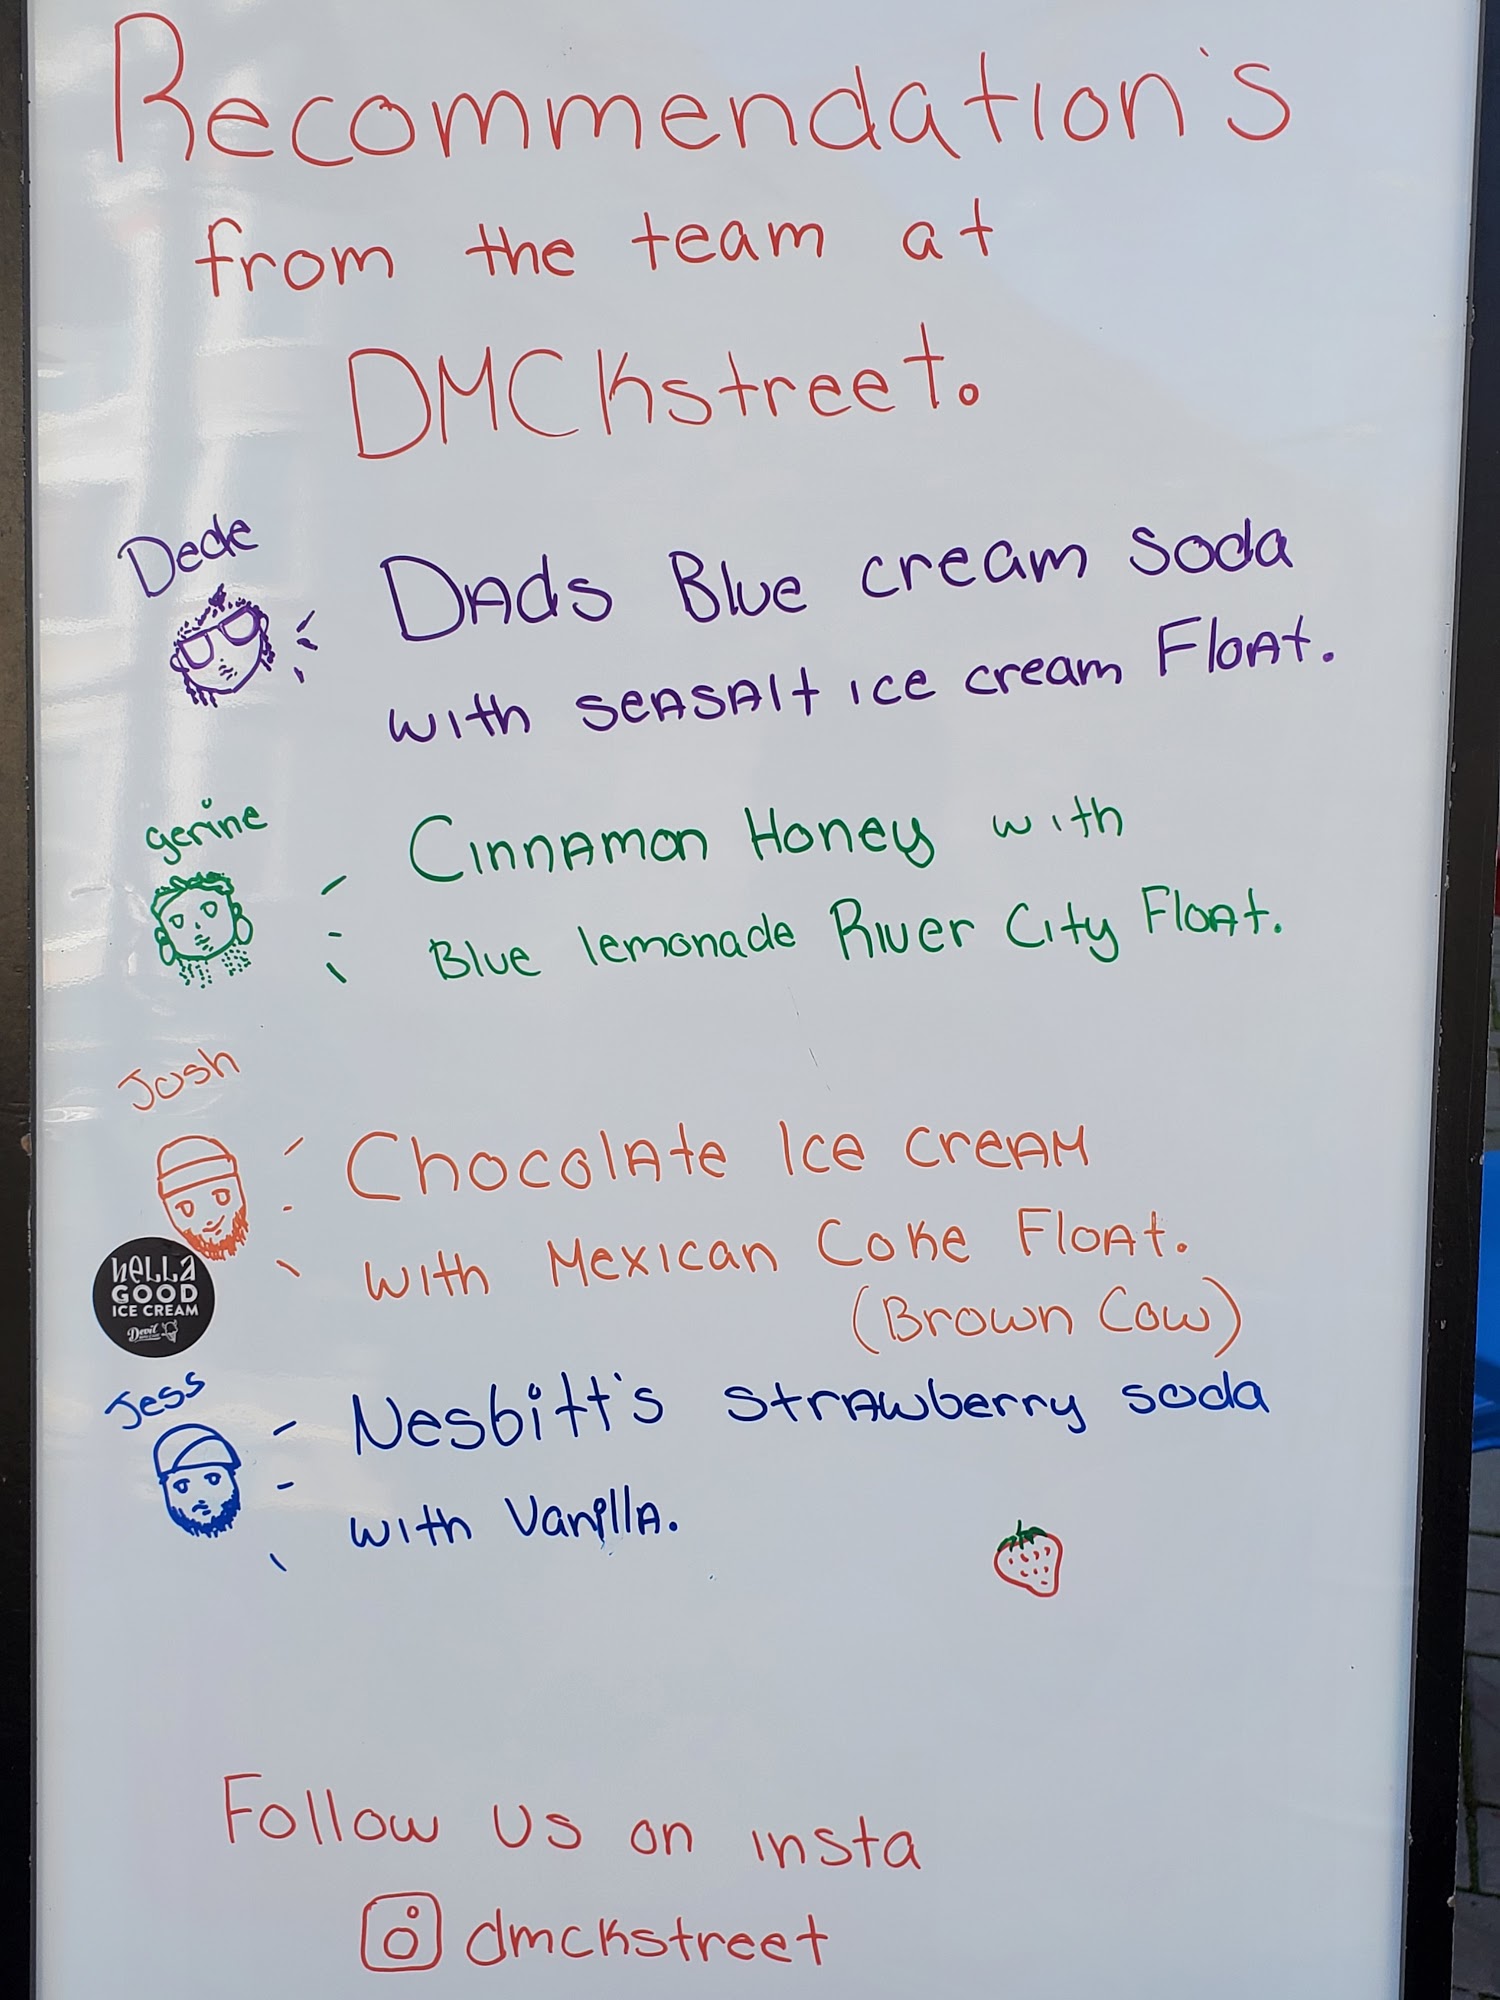 Recommendation's
from the team at
DMCKstreet.
Dede
Dads Blue cream soda
with seasalt ice cream Float.
gerine
Cinnamon Honey with
Blue lemonade River City Float.
Josh
Chocolate Ice cream
with Mexican Coke Float.
(Brown Cow)
HELLA
GOOD
ICE CREAM
Devil
Jess
Nesbitt's strawberry soda
with Vanilla.
Follow us on insta
dmckstreet